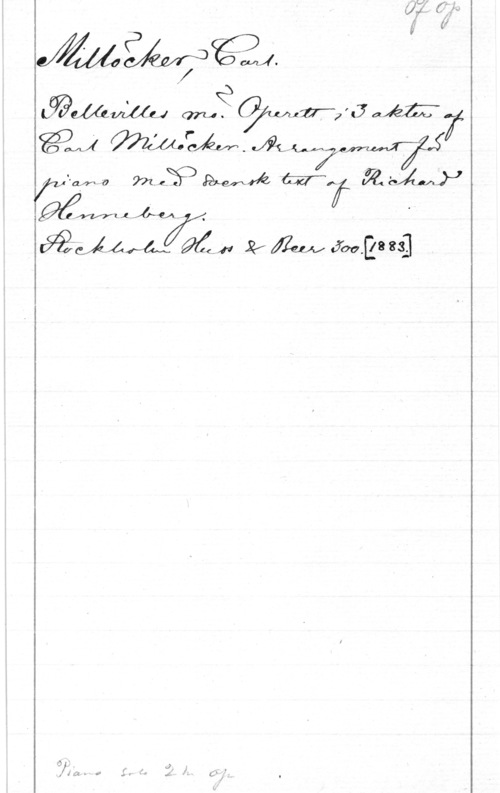 Of Op
Millöcker, Carl.
Bellevilles mö. Operett i 3 akter af
Carl Millöcker. Arrangement för
piano med svensk text af Richard
Henneberg.
Stockholm Huss & Beer 300. [1883]
Piano solo 2 h. Op